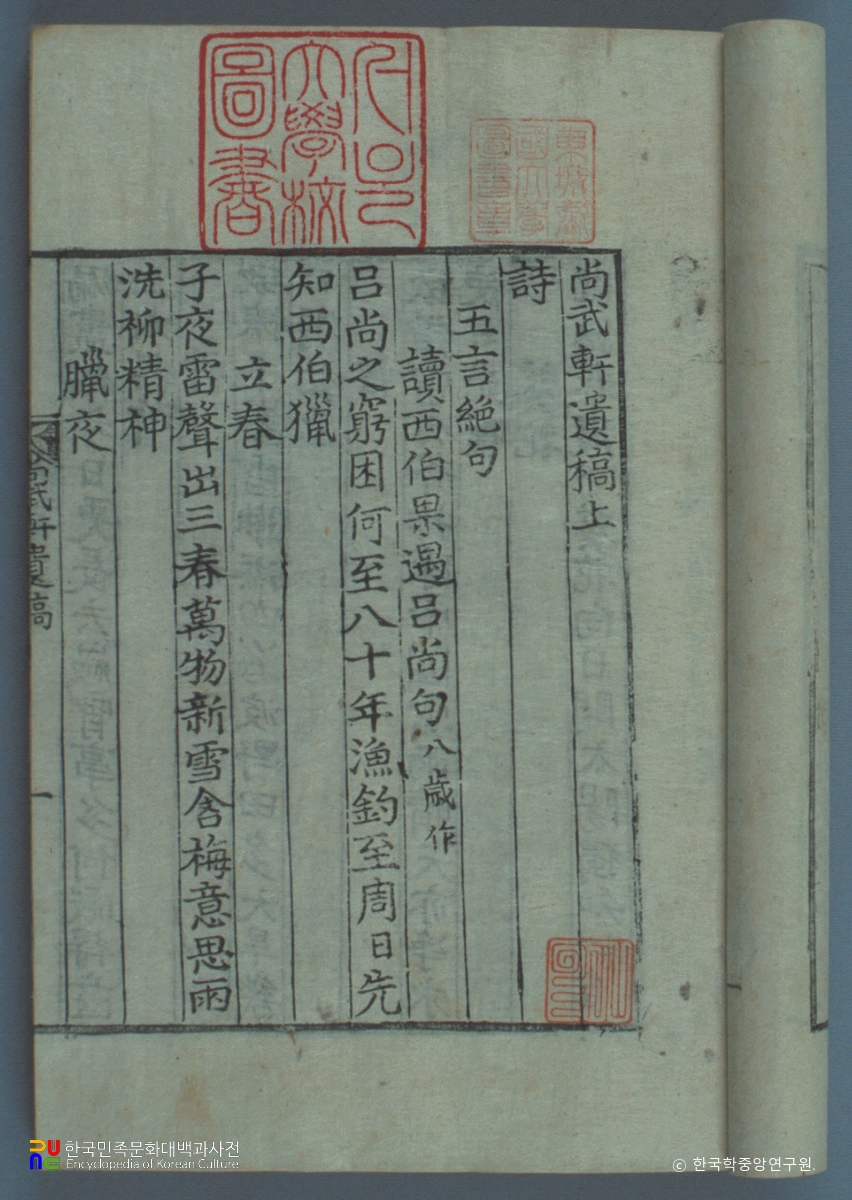 尚武軒遺稿上
詩
五言絶句
讀西伯果遇吕尚句 八歲作
吕尚之窮困何至八十年漁釣至周日先
知西伯獵
立春
子夜雷聲出三春萬物新雪含梅意思雨
洗柳精神
臘夜
尚武軒遺稿
一
大學校
圖書
東城
國大學
圖書
한국민족문화대백과사전
Encyclopedia of Korean Culture
© 한국학중앙연구원.